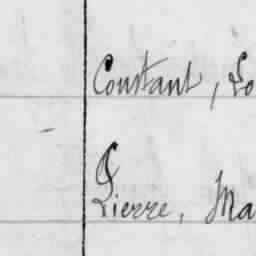 Constant, Lo
Pierre, Ma